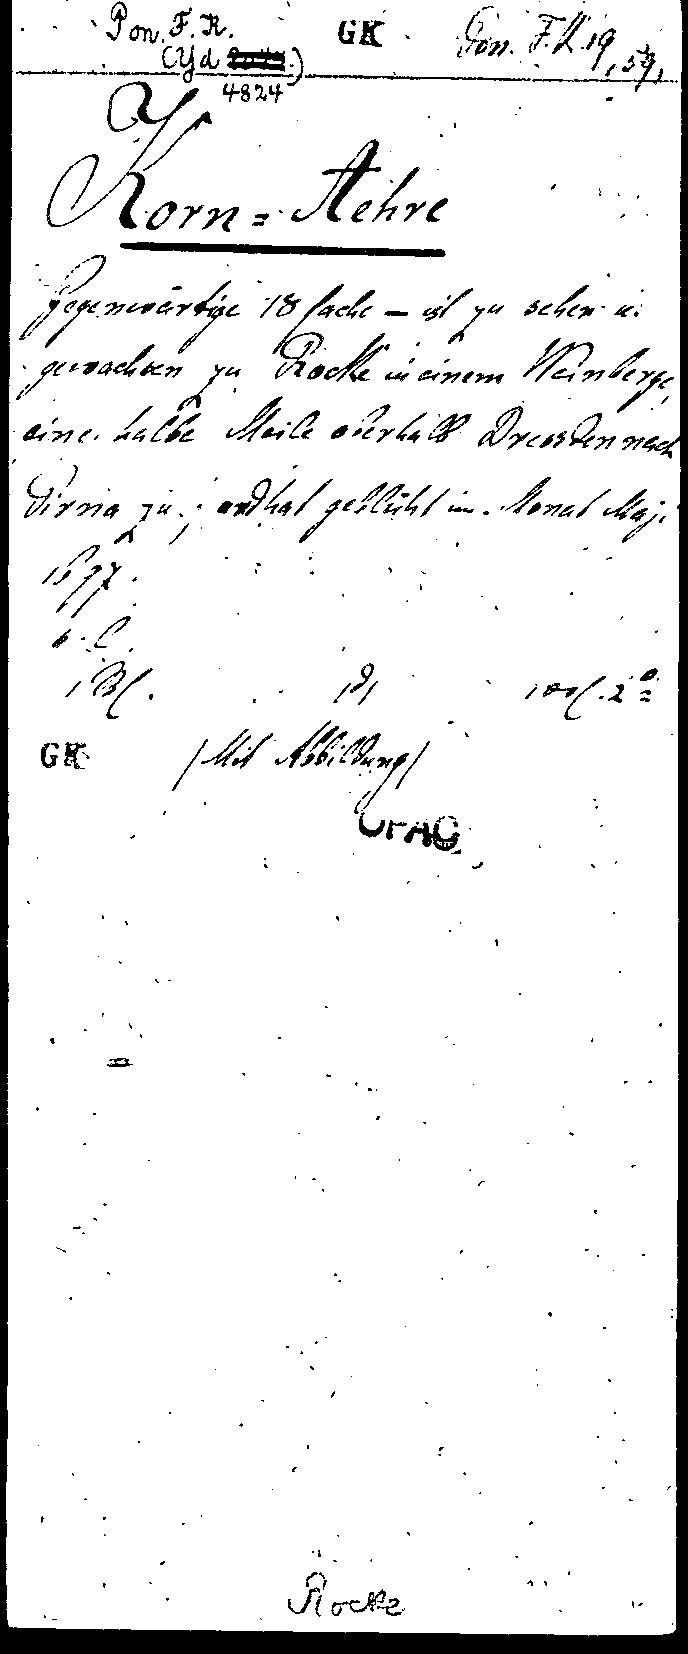 Pon. F. K. GK Pon. F. K. 19, 59,
(Yd .)
4824
Korn= Aehre
Gegenwärtige 18 fache – ist zu sehen u.
gewachsen zu Rocke in einem Weinberge,
eine halbe Meile oberhalb Dressden nach
Pirna zu; und hat geblüht im Monat Maji
1697.
o. O.
1 Bl.
GK (Mit Abbildung)
OPAC
Rocke